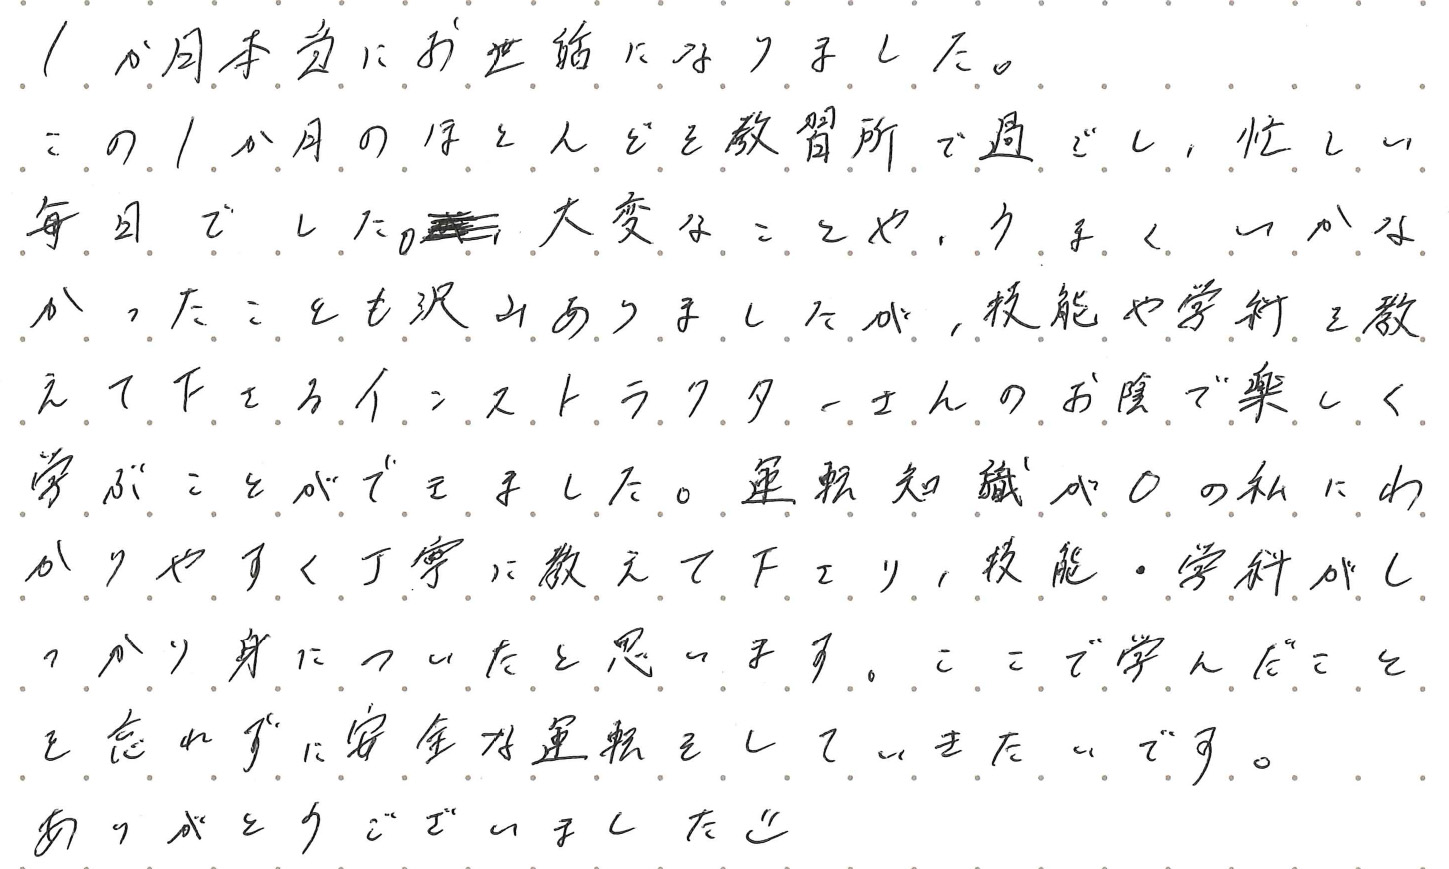 1か月本当にお世話になりました。
この1か月のほとんどを教習所で過ごし、忙しい
毎日でした。大変なことや、うまくいかな
かったことも沢山ありましたが、技能や学科を教
えて下さるインストラクターさんのお陰で楽しく
学ぶことができました。運転知識が0の私にわ
かりやすく丁寧に教えて下さり、技能・学科がし
っかり身についたと思います。ここで学んだこと
を忘れずに安全な運転をしていきたいです。
ありがとうございました